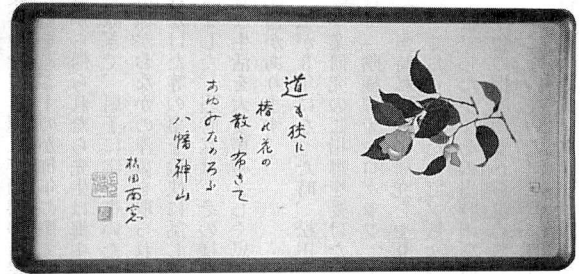 道も狭に
椿の花の
散り布きて
あゆみためらふ
八幡神山
松田